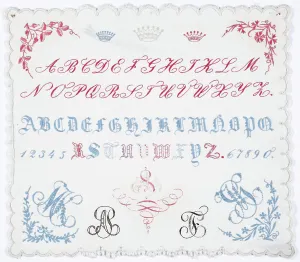 ABCDEFGHIKLM
NOPQRSTUVWXYZ.
ABCDEFGHIKLMNOPQ
12345 RSTUVWXYZ. 67890.